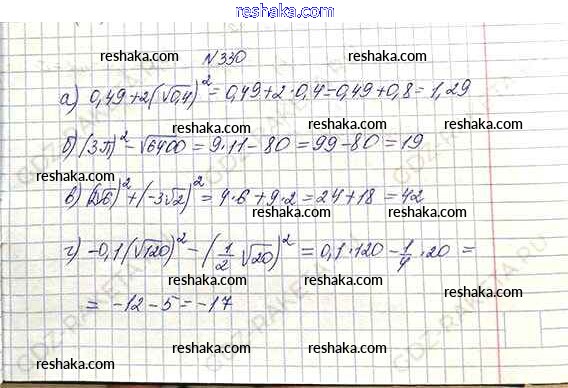 reshaka.com
№330
reshaka.com reshaka.com
а) 0,49+2(√0,4)² = 0,49+2·0,4=0,49+0,8=1,29
reshaka.com reshaka.com
б) (3√11)² - √6400 = 9·11-80=99-80=19
reshaka.com reshaka.com
в) (2√6)² + (-3√2)² = 4·6+9·2=24+18=42
reshaka.com reshaka.com
г) -0,1(√120)² - (1/2 √20)² = 0,1·120 - 1/4·20 =
reshaka.com reshaka.com
= -12-5=-17
reshaka.com reshaka.com
reshaka.com reshaka.com
GDZ-RAKETA.RU